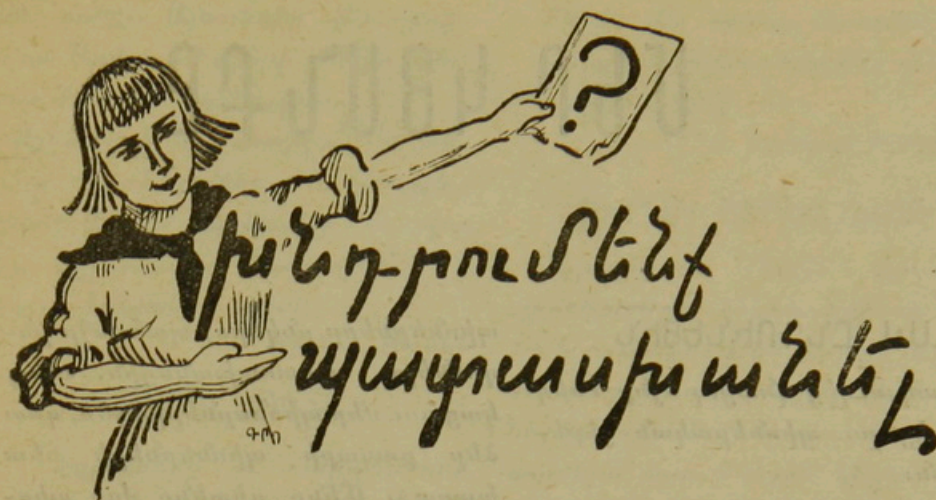 ?
խնդրում ենք
պատասխանել